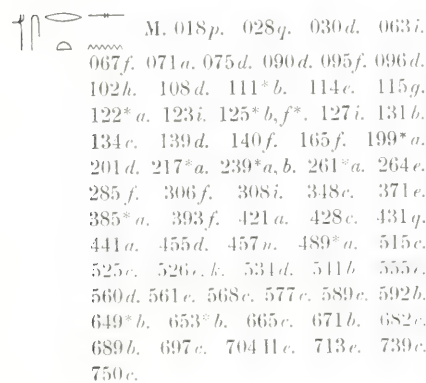 M. 018p. 028q. 030d. 063i.
067f. 071a. 075d. 090d. 095f. 096d.
102h. 108d. 111*b. 114c. 115g.
122*a. 123i. 125*b, f*. 127i. 131b.
134c. 139d. 140f. 165f. 199*a.
201d. 217*a. 239*a, b. 261*a. 264e.
285f. 306f. 308i. 348c. 371e.
385*a. 393f. 421a. 428c. 431q.
441a. 455d. 457n. 489*a. 515c.
525c. 526 k. 534d. 541b 555
560d. 561c. 568c. 577c. 589c. 592b.
649*b. 653*b. 665c. 671b. 682c.
689b. 697c. 704 713c. 739c.
750c.